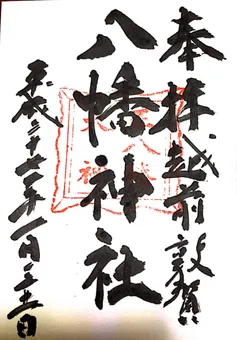 奉拝越前敦賀
八幡神社
平成三十一年一月日